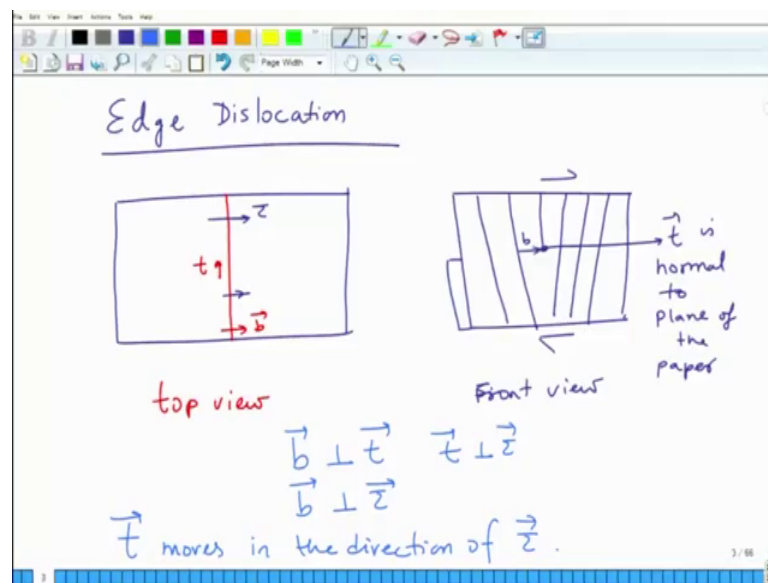 File Edit View Insert Actions Tools Help
B I
Page Width
Edge Dislocation
τ
t
b
top view
b
t is
normal
to
plane of
the
paper
Front view
b ⊥ t t ⊥ τ
b ⊥ τ
t moves in the direction of τ.
3 / 66
3